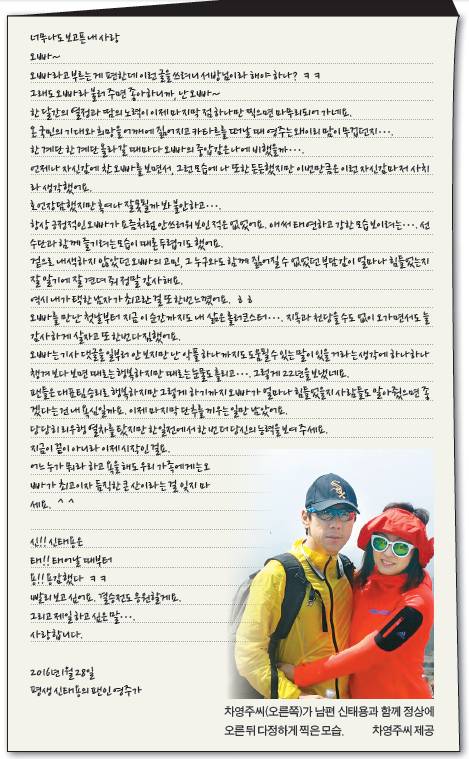 너무나도 보고픈 내 사랑
오빠~
오빠라고 부르는 게 편한데 이런 글을 쓰려니 서방님이라 해야 하나? ㅋㅋ
그래도 오빠라 불러 주면 좋아하니까, 난 오빠~
한 달간의 열정과 땀의 노력이 이제 마지막 점 하나만 찍으면 마무리되어 가네요.
온 국민의 기대와 희망을 어깨에 짊어지고 카타르를 떠날 때 영주는 왜이리 맘이 무겁던지….
한 계단 한 계단 올라갈 때마다 오빠의 중압감은 나에 비했을까….
언제나 자신감에 찬 오빠를 보면서, 그런 모습에 나 또한 든든했지만 이번만큼은 이런 자신감마저 사치
라 생각했어요.
호언장담했지만 혹여나 잘못될까 봐 불안하고….
항상 긍정적인 오빠가 요즘처럼 안쓰러워 보인 적은 없었어요. 애써 태연하고 강한 모습 보이려는…. 선
수단과 함께 즐기려는 모습이 때론 두렵기도 했어요.
겉으로 내색하지 않았던 오빠의 고민, 그 누구와도 함께 짊어질 수 없었던 부담감이 얼마나 힘들었는지
잘 알기에 잘 견뎌 줘 정말 감사해요.
역시 내가 택한 남자가 최고란 걸 또 한번 느꼈어요. ㅎㅎ
오빠를 만난 첫날부터 지금 이 순간까지도 내 삶은 롤러코스터…. 지옥과 천당을 수도 없이 오가면서도 늘
감사하게 살자고 또 한번 다짐했어요.
오빠는 기사 댓글을 일부러 안 보지만 난 악플 하나까지도 도움될 수 있는 말이 있을 거라는 생각에 하나하나
챙겨 보다 보면 때로는 행복하지만 때로는 눈물도 흘리고…. 그렇게 22년을 보냈네요.
팬들은 대표팀 승리로 행복하지만 그렇게 하기까지 오빠가 얼마나 힘들었을지 사람들도 알아줬으면 좋
겠다는 건 내 욕심일까요. 이제 마지막 단추를 끼우는 일만 남았어요.
당당히 리우행 열차를 탔지만 한일전에서 한 번 더 당신의 능력을 보여 주세요.
지금이 끝이 아니라 이제 시작인 걸요.
어느 누가 뭐라 하고 욕을 해도 우리 가족에게는 오
빠가 최고이자 듬직한 큰 산이라는 걸 잊지 마
세요. ^ ^
신!! 신태용은
태!! 태어날 때부터
용!! 용감했다 ㅋㅋ
빨리 보고 싶어요. 결승전도 응원할게요.
그리고 제일 하고 싶은 말….
사랑합니다.
2016년 1월 28일
평생 신태용의 팬인 영주가
SOX
차영주씨(오른쪽)가 남편 신태용과 함께 정상에
오른 뒤 다정하게 찍은 모습. 차영주씨 제공